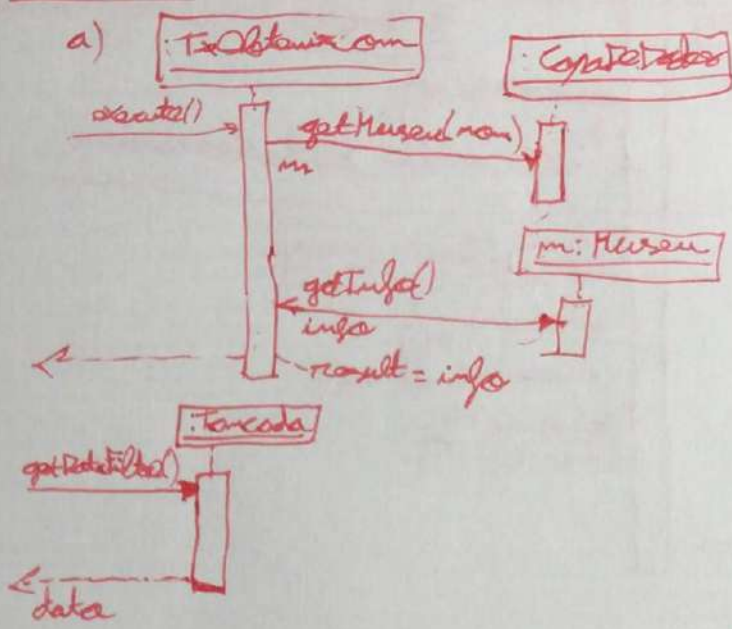 a)
:TxObtenir om
:CapaDeDades
execute()
getMuseu(nom)
m
m: Museu
getInfo()
info
result = info
:Tancada
getDataFi()
data